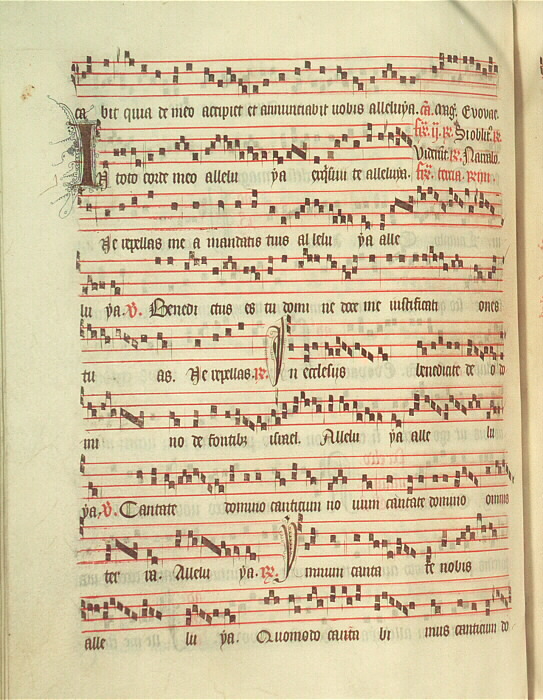 ca bit quia de meo accipiet et annunciabit vobis alleluya. Evovae.
fr ii. R. Si oblitus R.
Viderunt R. Narrabo.
In toto corde meo allelu ya exquisivi te alleluya. fr tercia.
Ne repellas me a mandatis tuis allelu ya alle
lu ya. V. Benedi ctus es tu domi ne doce me iustificati ones
tu as. Ne repellas. R. In ecclesiis benedicite de o do
mi no de fontibz israel. Allelu ya alle lu
ya. V. Cantate domino canticum no vum cantate domino omnis
ter ra. Allelu ya. R. Ymnum canta te nobis
alle lu ya. Quomodo canta bi mus canticum do